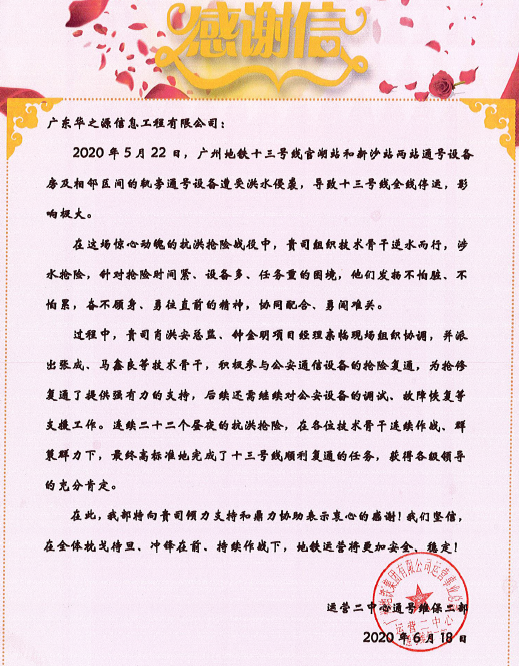 感谢信
广东华之源信息工程有限公司：
2020年5月22日，广州地铁十三号线官湖站和新沙站两站通号设备
房及相邻区间的轨旁通号设备遭受洪水侵袭，导致十三号线全线停运，影
响极大。
在这场惊心动魄的抗洪抢险战役中，贵司组织技术骨干逆水而行，涉
水抢险，针对抢险时间紧、设备多、任务重的困境，他们发扬不怕脏、不
怕累，奋不顾身、勇往直前的精神，协同配合、勇闯难关。
过程中，贵司肖洪安总监、钟金明项目经理亲临现场组织协调，并派
出张成、马鑫良等技术骨干，积极参与公安通信设备的抢险复通，为抢修
复通了提供强有力的支持，后续还需继续对公安设备的调试、故障恢复等
支援工作。连续二十二个昼夜的抗洪抢险，在各位技术骨干连续作战、群
策群力下，最终高标准地完成了十三号线顺利复通的任务，获得各级领导
的充分肯定。
在此，我部特向贵司倾力支持和鼎力协助表示衷心的感谢！我们坚信，
在全体枕戈待旦、冲锋在前、持续作战下，地铁运营将更加安全、稳定！
运营二中心通号维保二部
2020年6月18日
运营二中心